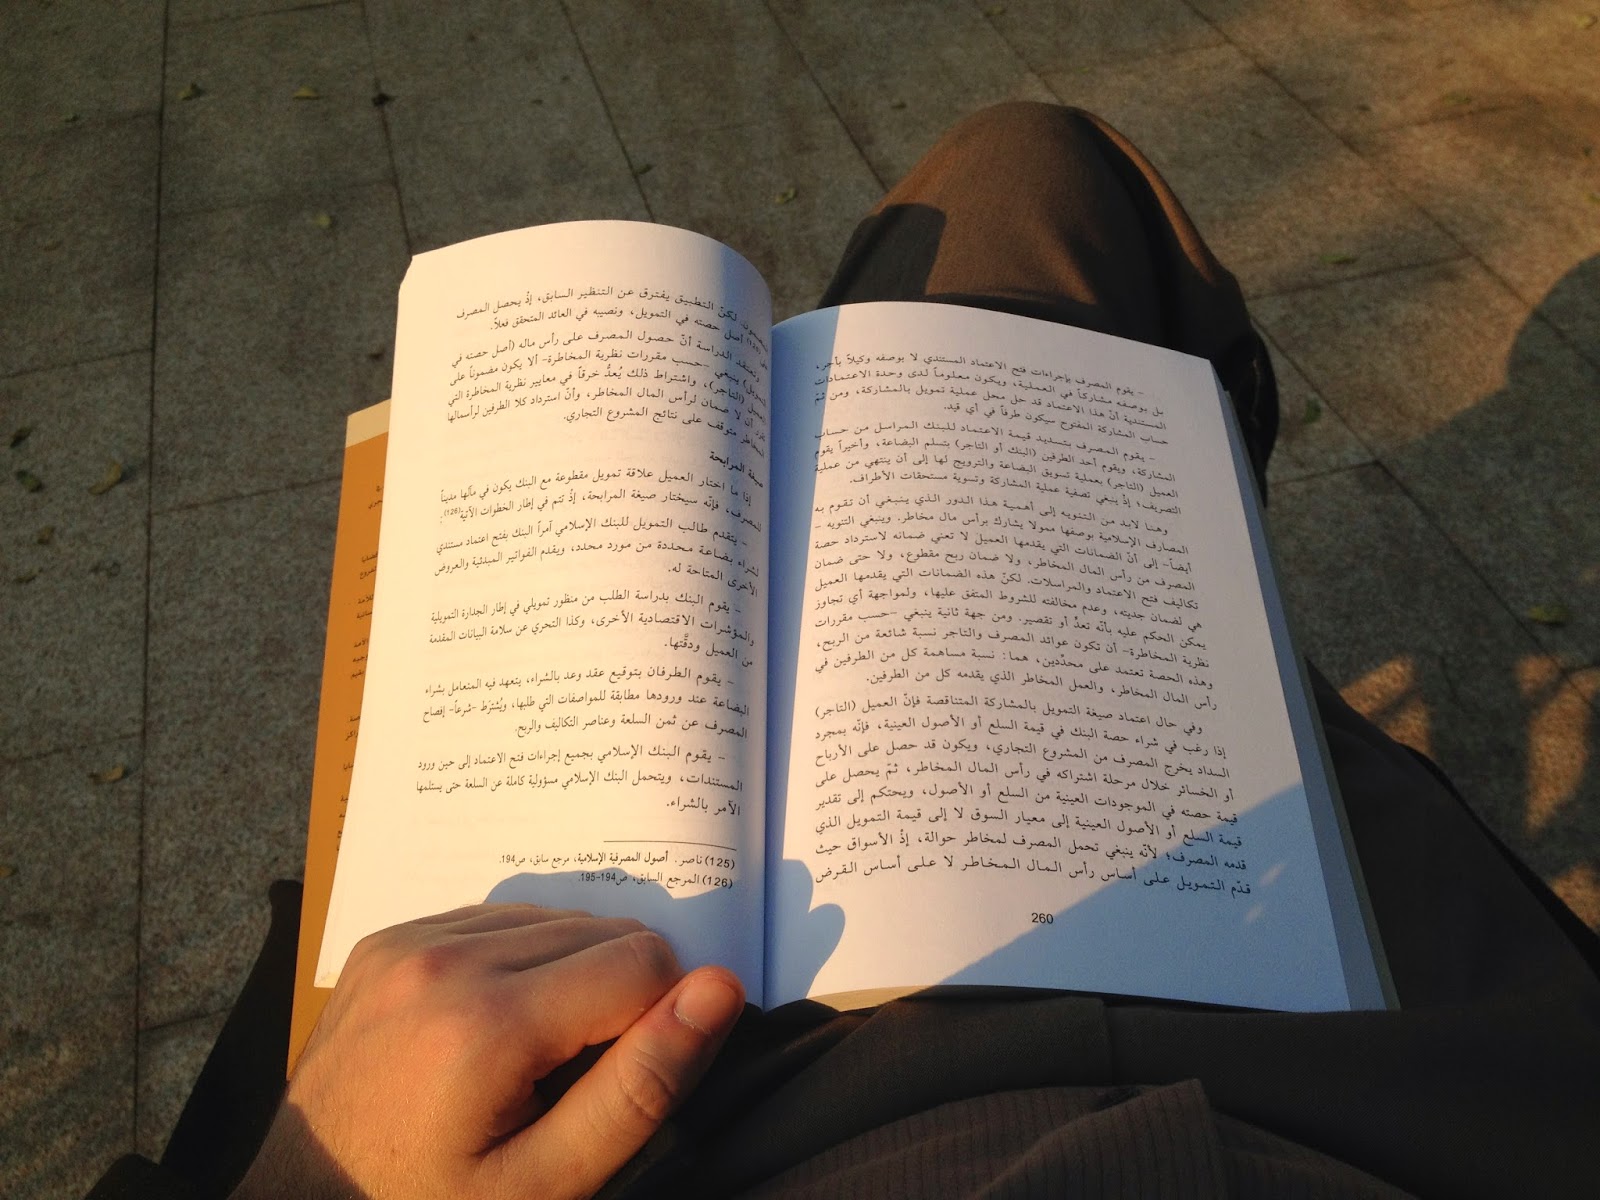 – يقوم المصرف بإجراءات فتح الاعتماد المستندي لا بوصفه وكيلاً بأجر،
بل بوصفه مشاركاً في العملية، ويكون معلوماً لدى وحدة الاعتمادات
المستندية أنّ هذا الاعتماد قد حل محل عملية تمويل بالمشاركة، ومن ثمّ
حساب المشاركة المفتوح سيكون طرفاً في أي قيد.
– يقوم المصرف بتسديد قيمة الاعتماد للبنك المراسل من حساب
المشاركة، ويقوم أحد الطرفين (البنك أو التاجر) بتسلم البضاعة، وأخيراً يقوم
العميل (التاجر) بعملية تسويق البضاعة والترويج لها إلى أن ينتهي من عملية
التصريف؛ إذْ ينبغي تصفية عملية المشاركة وتسوية مستحقات الأطراف.
وهنا لابد من التنويه إلى أهمية هذا الدور الذي ينبغي أن تقوم به
المصارف الإسلامية بوصفها ممولا يشارك برأس مال مخاطر. وينبغي التنويه –
أيضاً– إلى أنّ الضمانات التي يقدمها العميل لا تعني ضمانه لاسترداد حصة
المصرف من رأس المال المخاطر، ولا ضمان ربح مقطوع، ولا حتى ضمان
تكاليف فتح الاعتماد والمراسلات. لكنّ هذه الضمانات التي يقدمها العميل
هي لضمان جديته، وعدم مخالفته للشروط المتفق عليها، ولمواجهة أي تجاوز
يمكن الحكم عليه بأنّه تعدٍّ أو تقصير. ومن جهة ثانية ينبغي –حسب مقررات
نظرية المخاطرة– أن تكون عوائد المصرف والتاجر نسبة شائعة من الربح،
وهذه الحصة تعتمد على محدّدين، هما: نسبة مساهمة كل من الطرفين في
رأس المال المخاطر، والعمل المخاطر الذي يقدمه كل من الطرفين.
وفي حال اعتماد صيغة التمويل بالمشاركة المتناقصة فإنّ العميل (التاجر)
إذا رغب في شراء حصة البنك في قيمة السلع أو الأصول العينية، فإنّه بمجرد
السداد يخرج المصرف من المشروع التجاري، ويكون قد حصل على الأرباح
أو الخسائر خلال مرحلة اشتراكه في رأس المال المخاطر، ثمّ يحصل على
قيمة حصته في الموجودات العينية من السلع أو الأصول، ويحتكم إلى تقدير
قيمة السلع أو الأصول العينية إلى معيار السوق لا إلى قيمة التمويل الذي
قدمه المصرف؛ لأنّه ينبغي تحمل المصرف لمخاطر حوالة، إذْ الأسواق حيث
قدّم التمويل على أساس رأس المال المخاطر لا على أساس القرض
260
لكنّ التطبيق يفترق عن التنظير السابق، إذْ يحصل المصرف
(125) أصل حصته في التمويل، ونصيبه في العائد المتحقق فعلاً.
وتعتقد الدراسة أنّ حصول المصرف على رأس ماله (أصل حصته في
التمويل) ينبغي –حسب مقررات نظرية المخاطرة– ألا يكون مضموناً على
العميل (التاجر)، واشتراط ذلك يُعدُّ خرقاً في معايير نظرية المخاطرة التي
أن لا ضمان لرأس المال المخاطر، وأنّ استرداد كلا الطرفين لرأسمالها
المخاطر متوقف على نتائج المشروع التجاري.
صيغة المرابحة
إذا ما اختار العميل علاقة تمويل مقطوعة مع البنك يكون في مآلها مديناً
للمصرف، فإنّه سيختار صيغة المرابحة، إذْ تتم في إطار الخطوات الآتية(126):
– يتقدم طالب التمويل للبنك الإسلامي آمراً البنك بفتح اعتماد مستندي
لشراء بضاعة محددة من مورد محدد، ويقدم الفواتير المبدئية والعروض
الأخرى المتاحة له.
– يقوم البنك بدراسة الطلب من منظور تمويلي في إطار الجدارة التمويلية
والمؤشرات الاقتصادية الأخرى، وكذا التحري عن سلامة البيانات المقدمة
من العميل ودقَّتها.
– يقوم الطرفان بتوقيع عقد وعد بالشراء، يتعهد فيه المتعامل بشراء
البضاعة عند ورودها مطابقة للمواصفات التي طلبها، ويُشترَط –شرعاً– إفصاح
المصرف عن ثمن السلعة وعناصر التكاليف والربح.
– يقوم البنك الإسلامي بجميع إجراءات فتح الاعتماد إلى حين ورود
المستندات، ويتحمل البنك الإسلامي مسؤولية كاملة عن السلعة حتى يستلمها
الآمر بالشراء.
(125) ناصر. أصول المصرفية الإسلامية، مرجع سابق، ص194.
(126) المرجع السابق، ص194–195.